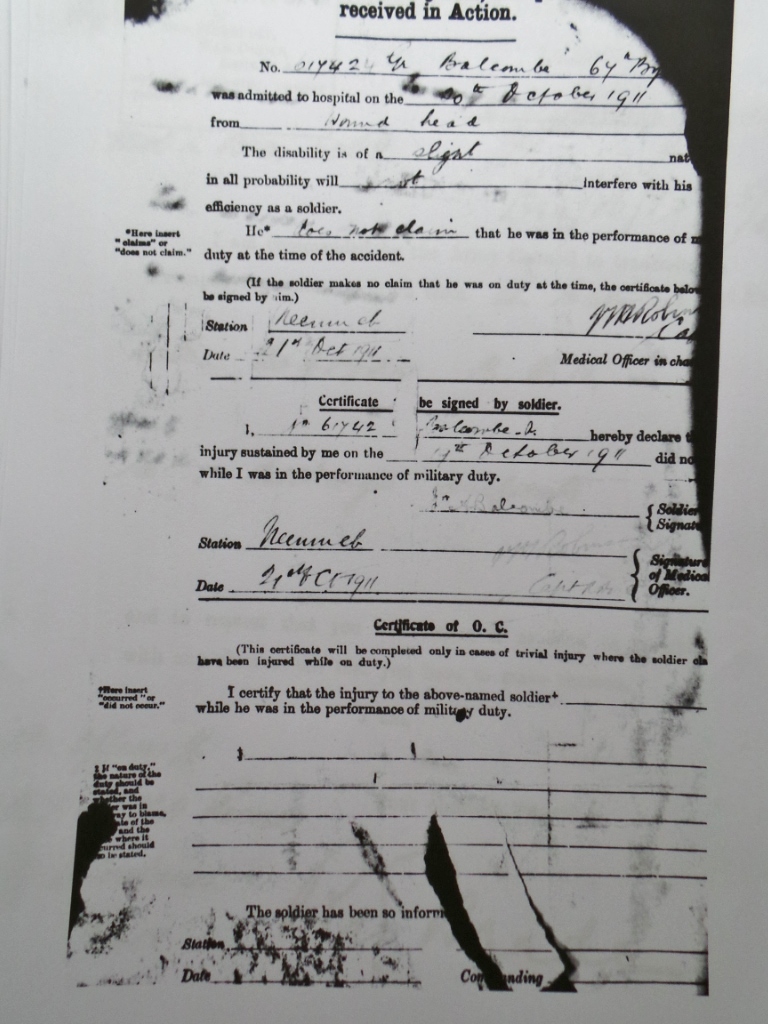 received in Action.
No. 61742 Gr Balcombe 67th By
was admitted to hospital on the 20th October 1911
from Wound head
The disability is of a slight nat
in all probability will not interfere with his
efficiency as a soldier.
*Here insert
"claims" or
"does not claim."
He* does not claim that he was in the performance of m
duty at the time of the accident.
(If the soldier makes no claim that he was on duty at the time, the certificate below
be signed by him.)
Station Neemuch
Date 21st Oct 1911
Medical Officer in cha
Certificate be signed by soldier.
I, 61742 Balcombe hereby declare t
injury sustained by me on the October 1911 did no
while I was in the performance of military duty.
Balcombe
Soldier
Signat
Station Neemuch
Date 21st Oct 1911
Signature
of Medica
Officer.
Certificate of O. C.
(This certificate will be completed only in cases of trivial injury where the soldier cla
have been injured while on duty.)
†Here insert
"occurred" or
"did not occur."
I certify that the injury to the above-named soldier†
while he was in the performance of military duty.
‡ If "on duty,"
the nature of the
duty should be
stated, and
whether the
er was in
way to blame,
and the
where it
urred should
so be stated.
The soldier has been so inform
Station
Date
Commanding